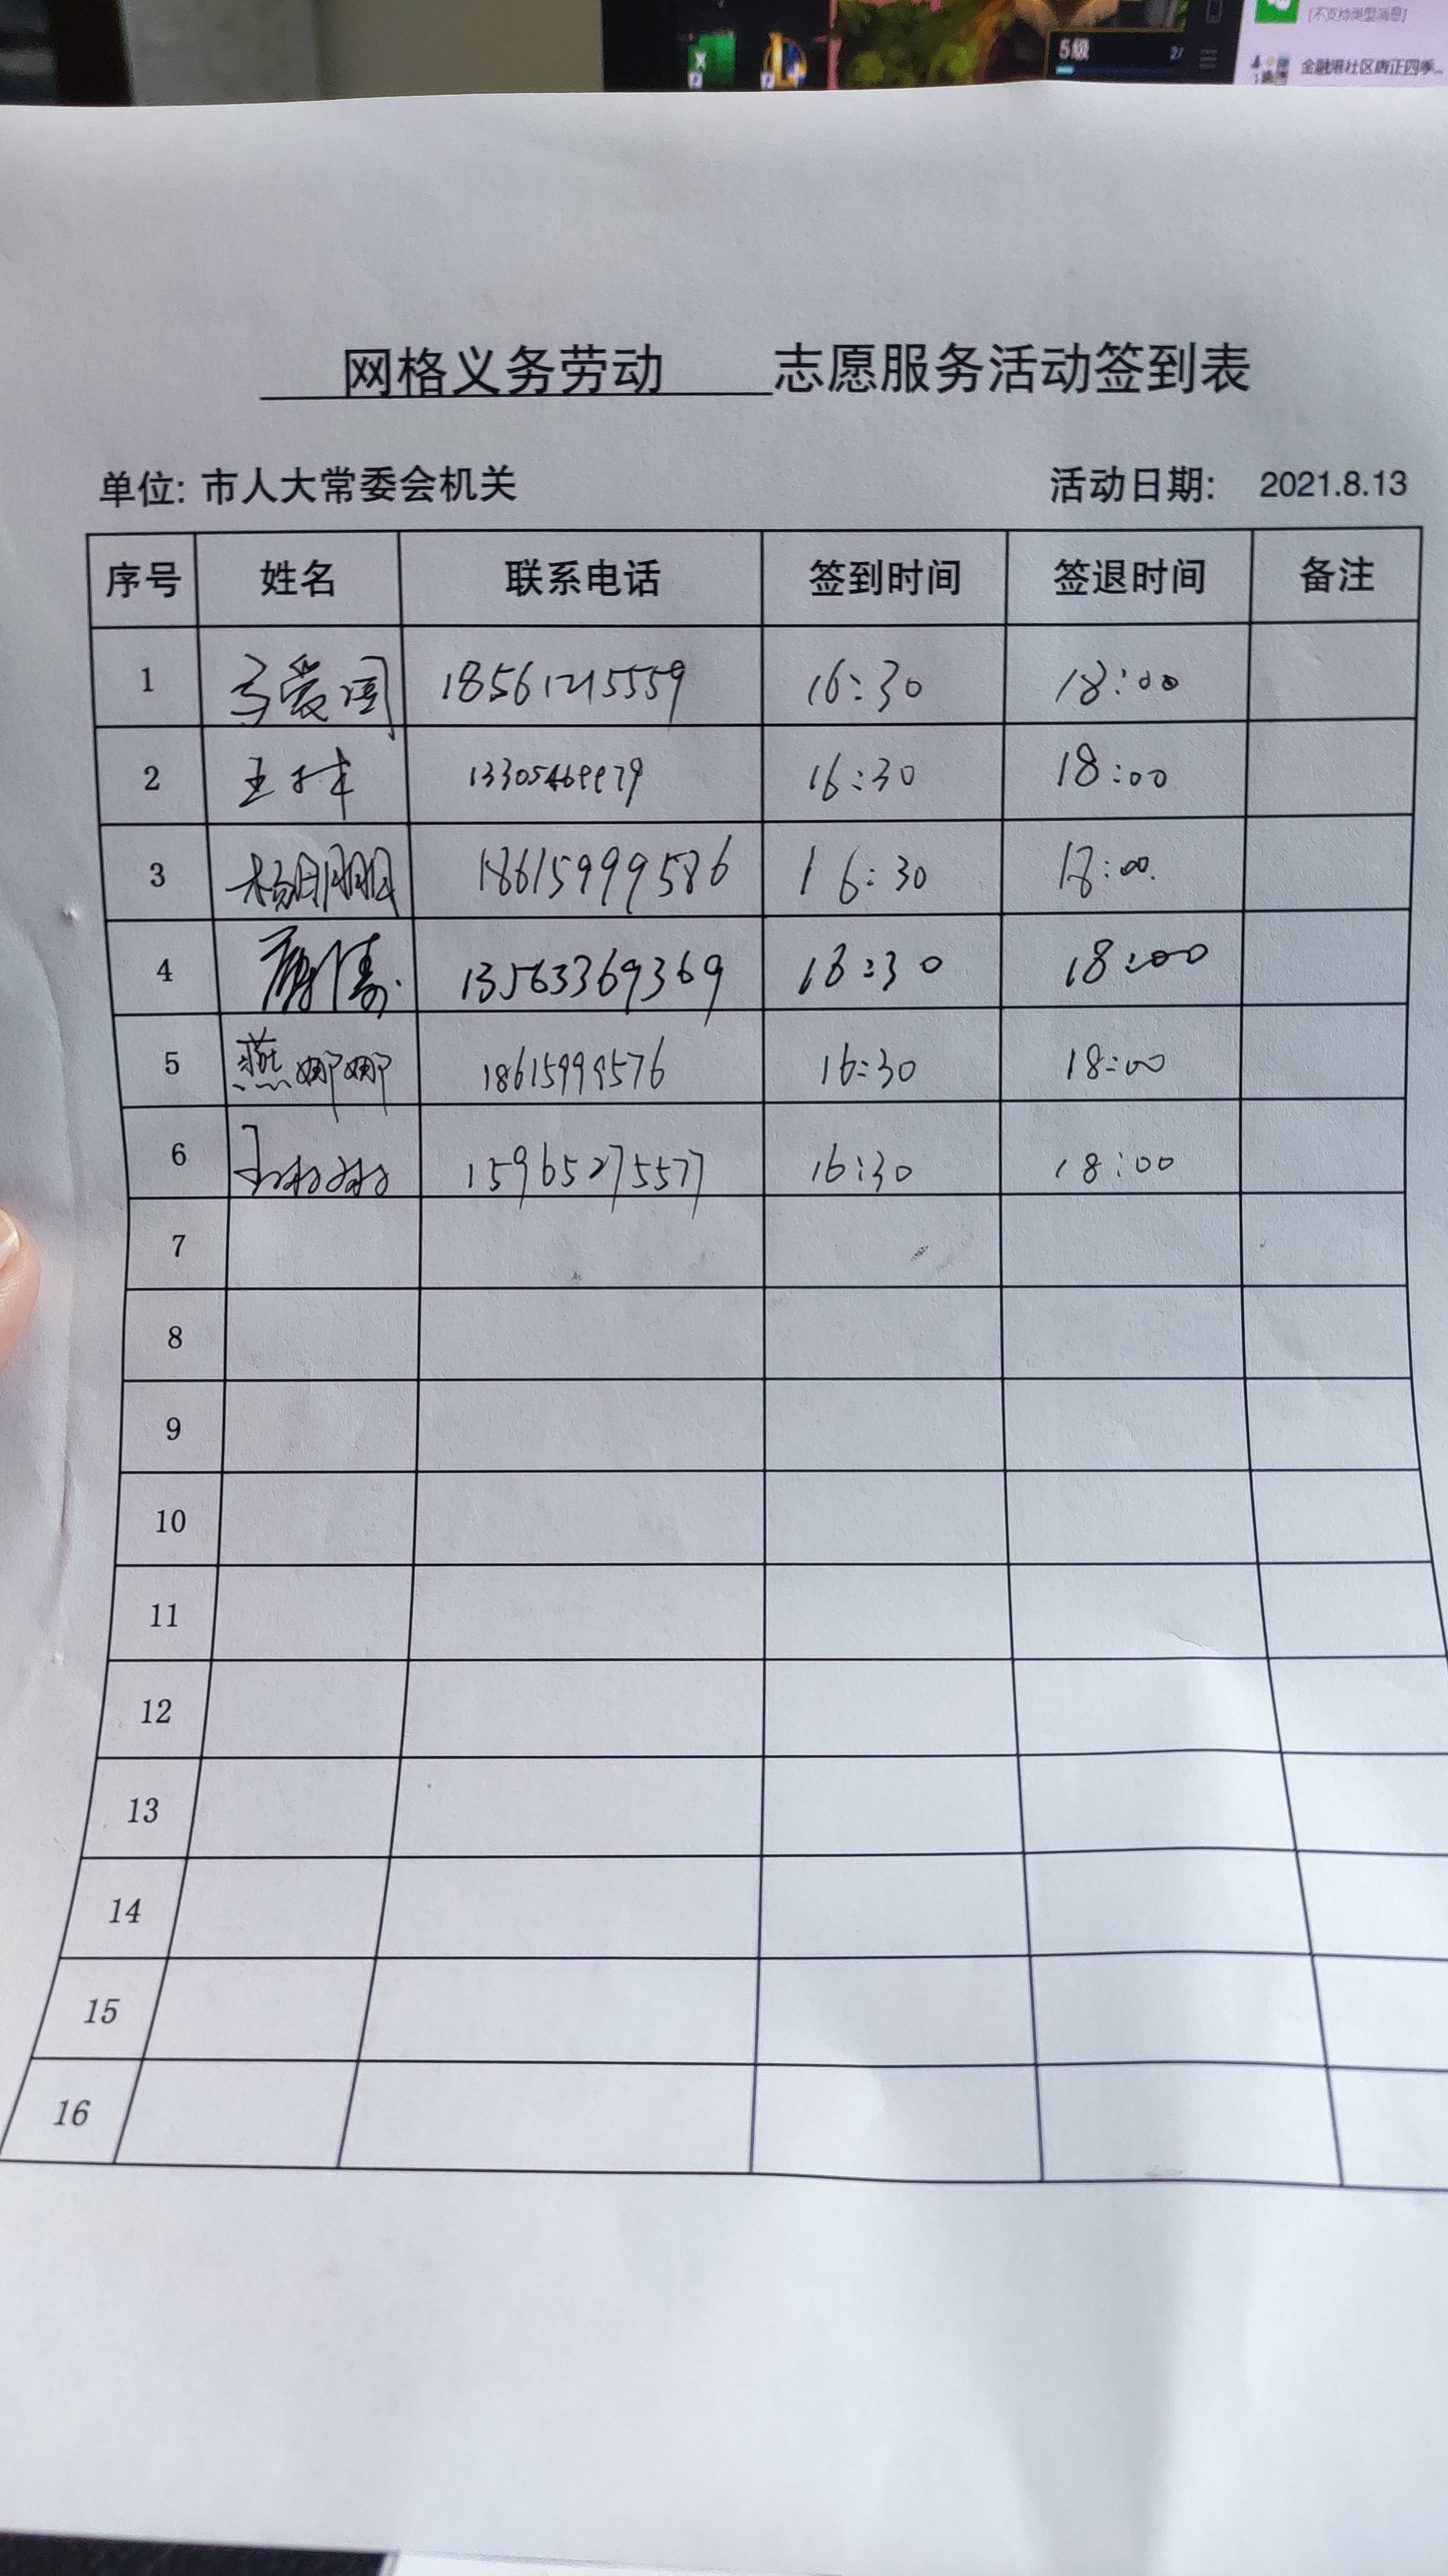 5级
2/
[不支持类型消息]
金融港社区唐正四季...
网格义务劳动 志愿服务活动签到表
单位: 市人大常委会机关 活动日期: 2021.8.13
序号 姓名 联系电话 签到时间 签退时间 备注
1 马爱国 18561215559 16:30 18:00
2 16:30 18:00
3 杨鹏 18615999586 16:30 18:00.
4 13563369369 16:30 18:00
5 燕娜娜 18615999576 16:30 18:00
6 15965275577 16:30 18:00
7
8
9
10
11
12
13
14
15
16